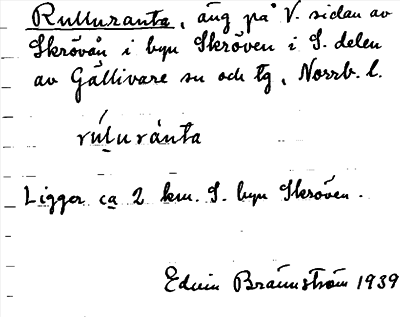 Rulluranta, äng på V. sidan av
Skröven i byn Skröven i S. delen
av Gällivare sn och tg, Norrb. l.
rúluránta
Ligger ca 2 km. S. byn Skröven.
Edvin Brännström 1939